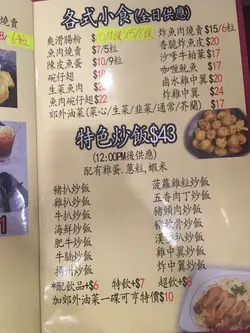 各式小食(全日供應)
爽滑腸粉
魚肉燒賣 $7/5粒
陳皮魚蛋 $10/9粒
碗仔翅 $20
生菜魚肉 $20
魚肉碗仔翅 $22
郊外油菜(菜心/生菜/韭菜/通菜/芥蘭) $17
炸魚肉燒賣$15/6粒
香脆炸魚皮 $20
沙嗲牛柏葉 $17
咖喱魷魚 $17
鹵水雞中翼 $24
炸雞中翼 $24
特色炒飯$43
(12:00PM後供應)
配有雞蛋.蔥粒,蝦米
豬扒炒飯
雞扒炒飯
牛扒炒飯
海鮮炒飯
肥牛炒飯
牛腸炒飯
揚州炒飯
菠蘿雞粒炒飯
五香肉丁炒飯
豬頸肉炒飯
炸中翼炒飯
*配飲品+$6 特飲+$7 超飲+$8
加郊外油菜一碟可亨特價$10